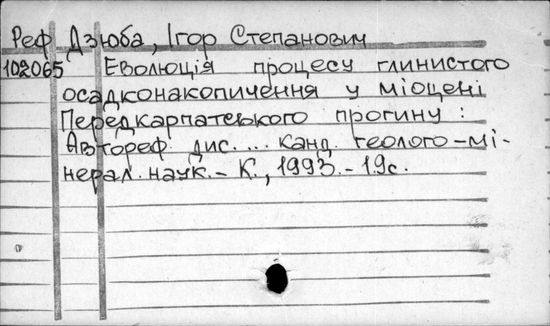 Реф Дзюба, Ігор Степанович
102065 Еволюція процесу глинистого
осадконакопичення у міоцені
Передкарпатського прогину :
Автореф. дис. ... канд. геолого-мі-
нерал. наук. - К., 1993. - 19с.